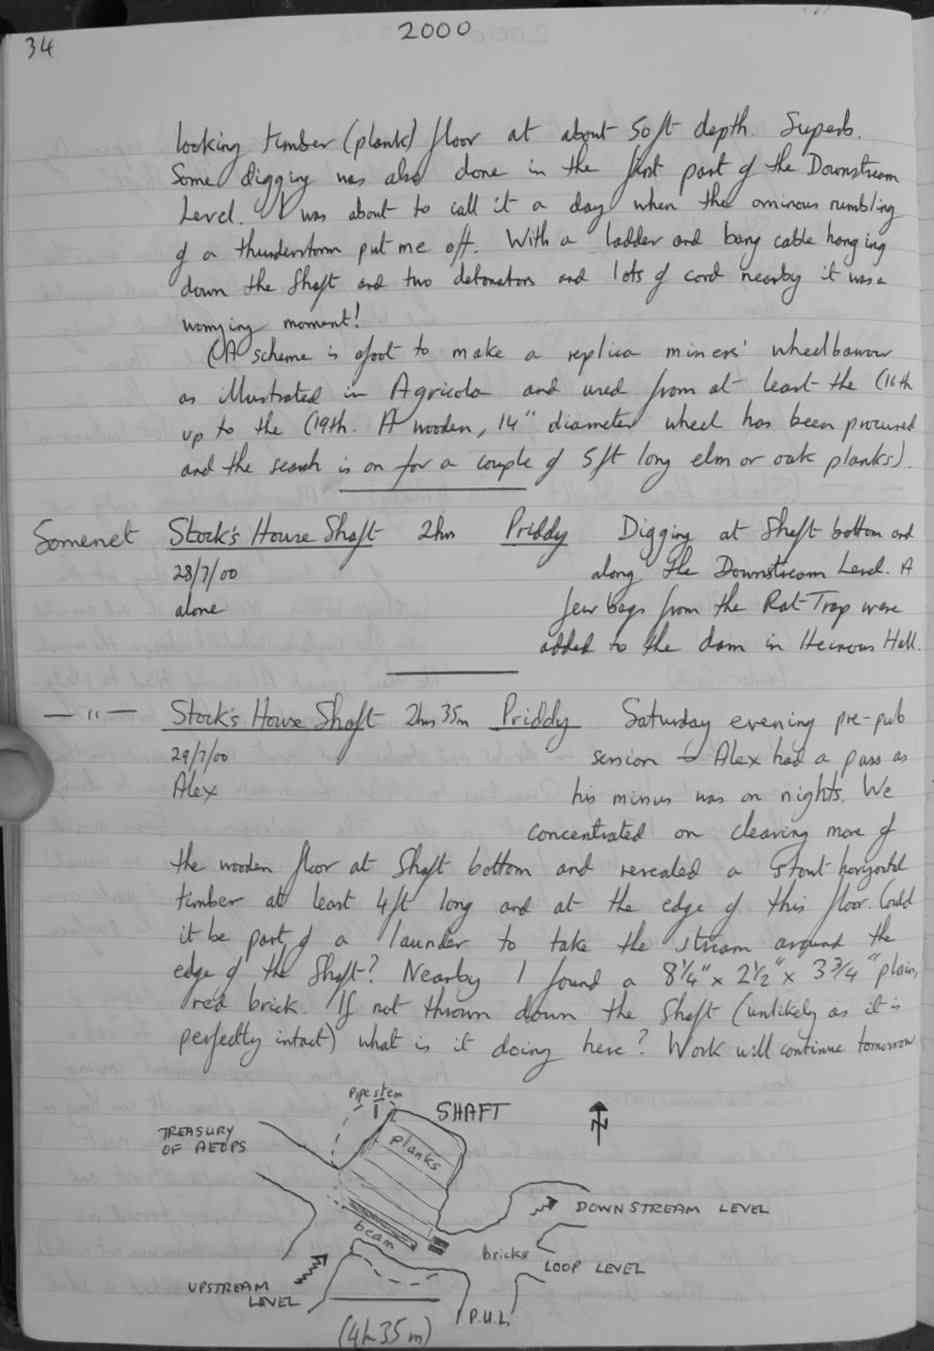 34
2000
looking timber (plank) floor at about 50ft depth. Superb.
Some digging was also done in the first part of the Downstream
Level. I was about to call it a day when the ominous rumbling
of a thunderstorm put me off. With a ladder and bang cable hanging
down the Shaft and two detonators and lots of cord nearby it was a
worrying moment!
(A scheme is afoot to make a replica miners' wheelbarrow
as illustrated in Agricola and used from at least the C16th
up to the C19th. A wooden, 14" diameter wheel has been procured
and the search is on for a couple of 5ft long elm or oak planks).
Somerset Stock's House Shaft 2hrs Priddy Digging at Shaft bottom and
28/7/00 along the Downstream Level. A
alone few bags from the Rat-Trap were
added to the dam in Heinous Hall.
— " — Stock's House Shaft 2hrs 35m Priddy Saturday evening pre-pub
29/7/00 session - Alex had a pass as
Alex his missus was on nights. We
concentrated on clearing more of
the wooden floor at Shaft bottom and revealed a stout horizontal
timber at least 4ft long and at the edge of this floor. Could
it be part of a launder to take the stream around the
edge of the Shaft? Nearby I found a 8¼" x 2½" x 3¾" plain,
red brick. If not thrown down the Shaft (unlikely as it is
perfectly intact) what is it doing here? Work will continue tomorrow
pipe stem
SHAFT
N
TREASURY
OF AEOPS
planks
DOWNSTREAM LEVEL
beam
bricks
LOOP LEVEL
UPSTREAM
LEVEL
P.U.L.
(4h 35m)